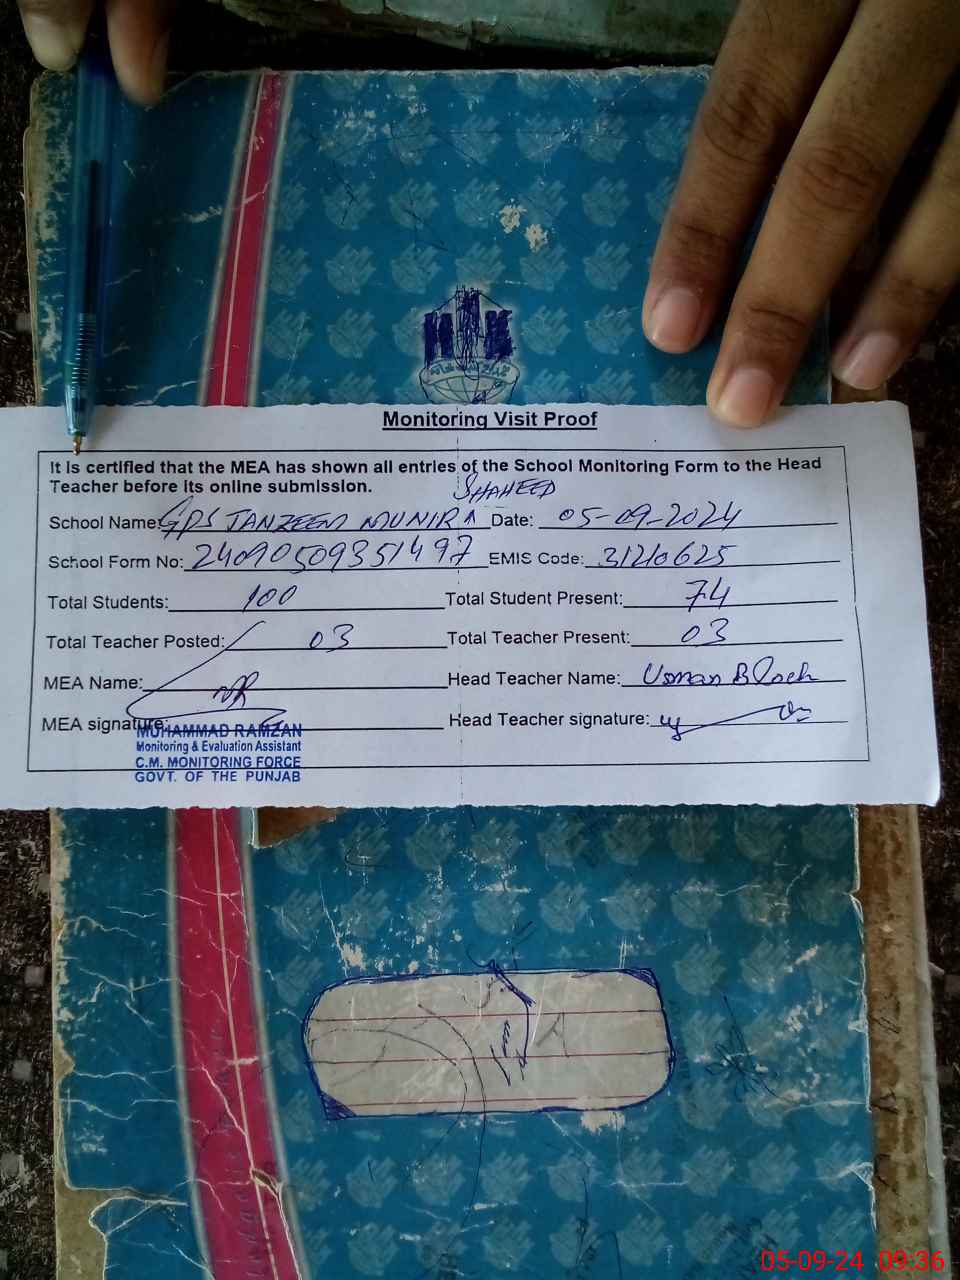 Monitoring Visit Proof
It is certified that the MEA has shown all entries of the School Monitoring Form to the Head
Teacher before its online submission.
SHAHEED
School Name: GPS TANZEEM MUNIRA Date: 05-09-2024
School Form No: 24090509351497 EMIS Code: 31210625
Total Students: 100 Total Student Present: 74
Total Teacher Posted: 03 Total Teacher Present: 03
MEA Name: Head Teacher Name: Usman Bloch
MEA signature: Head Teacher signature:
MUHAMMAD RAMZAN
Monitoring & Evaluation Assistant
C.M. MONITORING FORCE
GOVT. OF THE PUNJAB
05-09-24 09:36